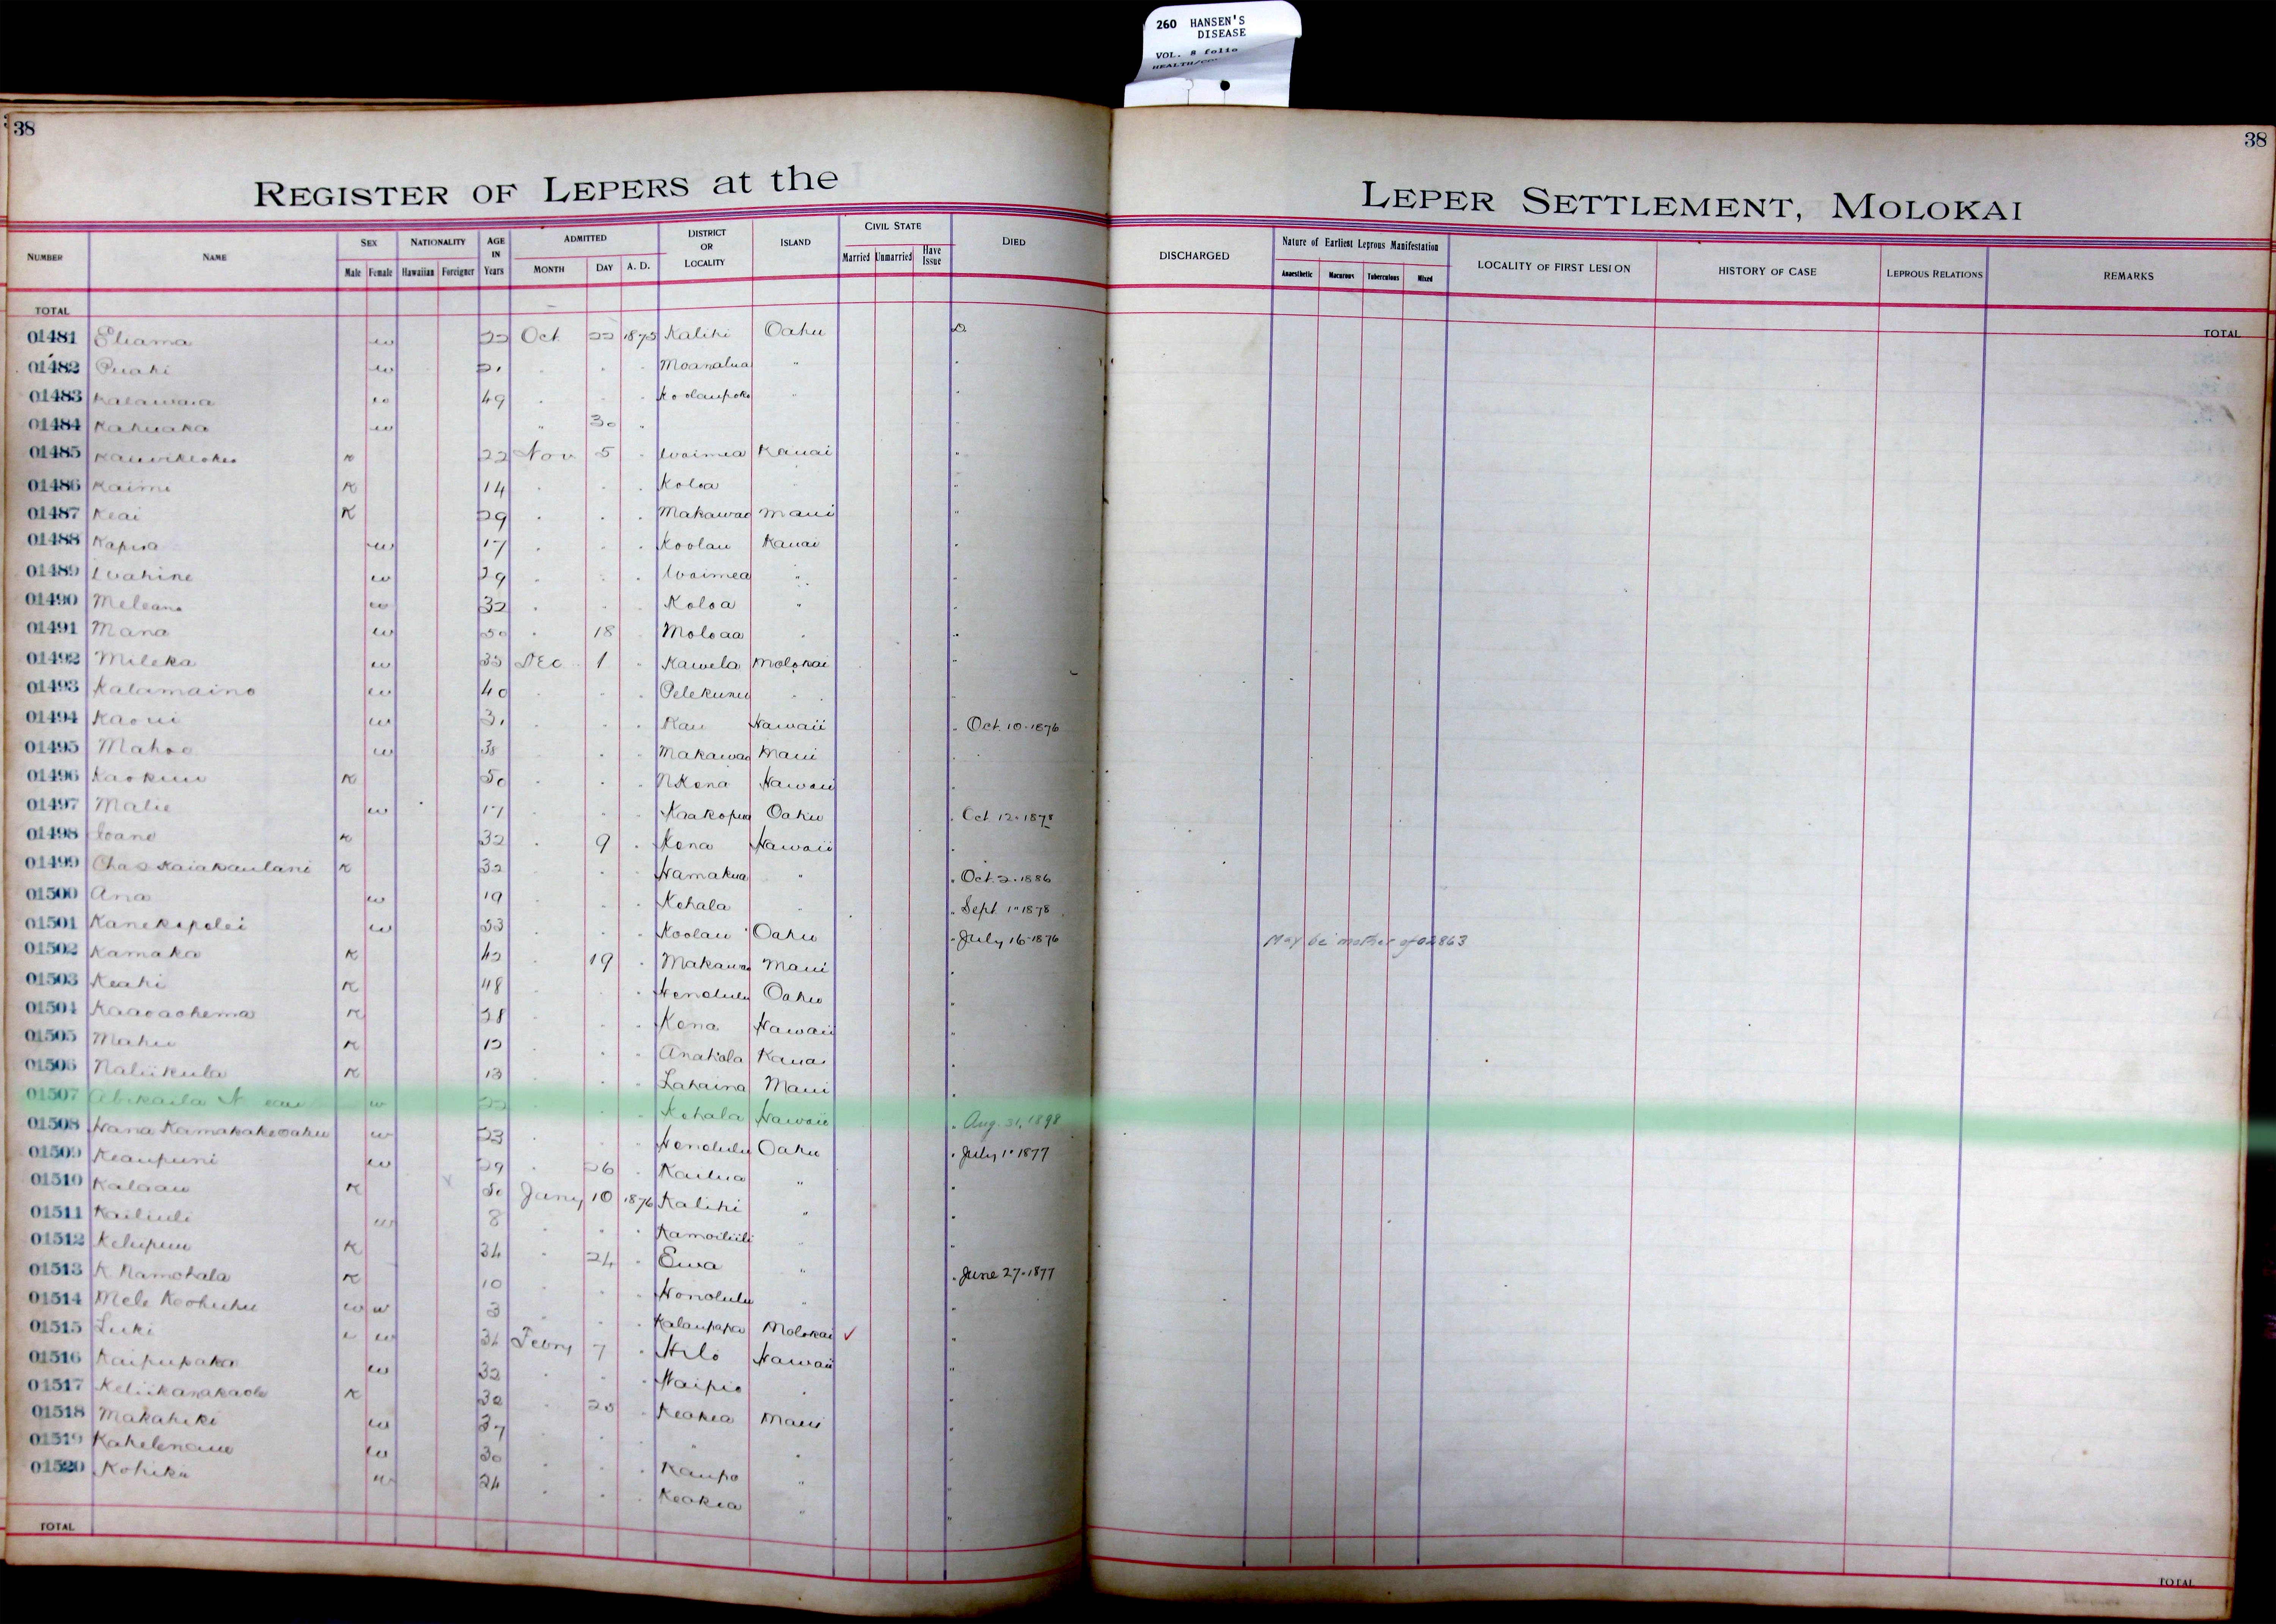 260 HANSEN'S
DISEASE
VOL. 8 folio
38
38
REGISTER OF LEPERS at the LEPER SETTLEMENT, MOLOKAI
NUMBER NAME SEX Male Female NATIONALITY Hawaiian Foreigner AGE IN Years ADMITTED MONTH DAY A. D. DISTRICT OR LOCALITY ISLAND CIVIL STATE Married Unmarried Have Issue DIED DISCHARGED Nature of Earliest Leprous Manifestation Anaesthetic Macurous Tuberculous Mixed LOCALITY OF FIRST LESION HISTORY OF CASE LEPROUS RELATIONS REMARKS
TOTAL TOTAL
01481 w 22 Oct 22 1875 Kalihi Oahu D
01482 Puahi w Moanalua "
01483 Kalawaia w 49 Koolaupoko "
01484 Kahuaka w " 30 "
01485 K 22 Nov 5 Waimea Kauai "
01486 Kaimi K 14 Koloa "
01487 Keai K 29 Makawao Maui "
01488 w 17 Koolau Kauai "
01489 Wahine w 29 Waimea " "
01490 Meleana w 32 Koloa " "
01491 Mana w 50 18 Moloaa " "
01492 Mileka w 35 Dec 1 Kawela Molokai "
01493 Kalamaino w 40 " Pelekunu " "
01494 Kaoui w 31 Kau Hawaii " Oct. 10-1876
01495 Mahoe w 38 Makawao Maui "
01496 Kaokuu K 50 N Kona Hawaii "
01497 Malie w 17 Kaakopua Oahu " Oct 12-1878
01498 Ioane K 32 9 Kona Hawaii "
01499 Chas Kaiakaulani K 32 Hamakua " " Oct. 2-1886
01500 Ana w 19 Kohala " " Sept 1-1878
01501 Kanekapolei w 53 Koolau Oahu " July 16-1876 May be mother of 02863
01502 Kamaka K 42 19 Makawao Maui "
01503 Keahi K 48 Honolulu Oahu "
01504 Kaaoaohema K 28 Kona Hawaii "
01505 Mahu K 12 Anahola Kauai "
01506 Naliikula K 13 Lahaina Maui "
01507 w 22 Kohala Hawaii " Aug. 31, 1898
01508 Hana Kamakakeoahu w 23 Honolulu Oahu " July 1-1877
01509 Keaupuni w 29 26 Kailua " "
01510 Kalaau K 50 Jany 10 1876 Kalihi " "
01511 Kailiuli w 8 Kamoiliili " "
01512 Kelupuu K 34 24 Ewa " " June 27-1877
01513 K Namohala K 10 Honolulu " "
01514 Mele Keohuhu w w 3 Kalaupapa Molokai ✓ "
01515 Luki w 34 Febry 7 Hilo Hawaii "
01516 Kaipupaka w 32 Waipio " "
01517 Keliikanakaole K 30 25 Keokea Maui "
01518 Makahiki w 37 " " "
01519 w 30 Kaupo " "
01520 Kohike w 24 Keokea " "
TOTAL TOTAL